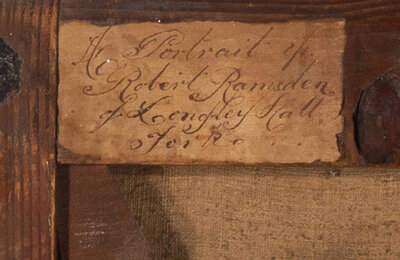 A Portrait of
Robert Ramsden
of Longley Hall
York